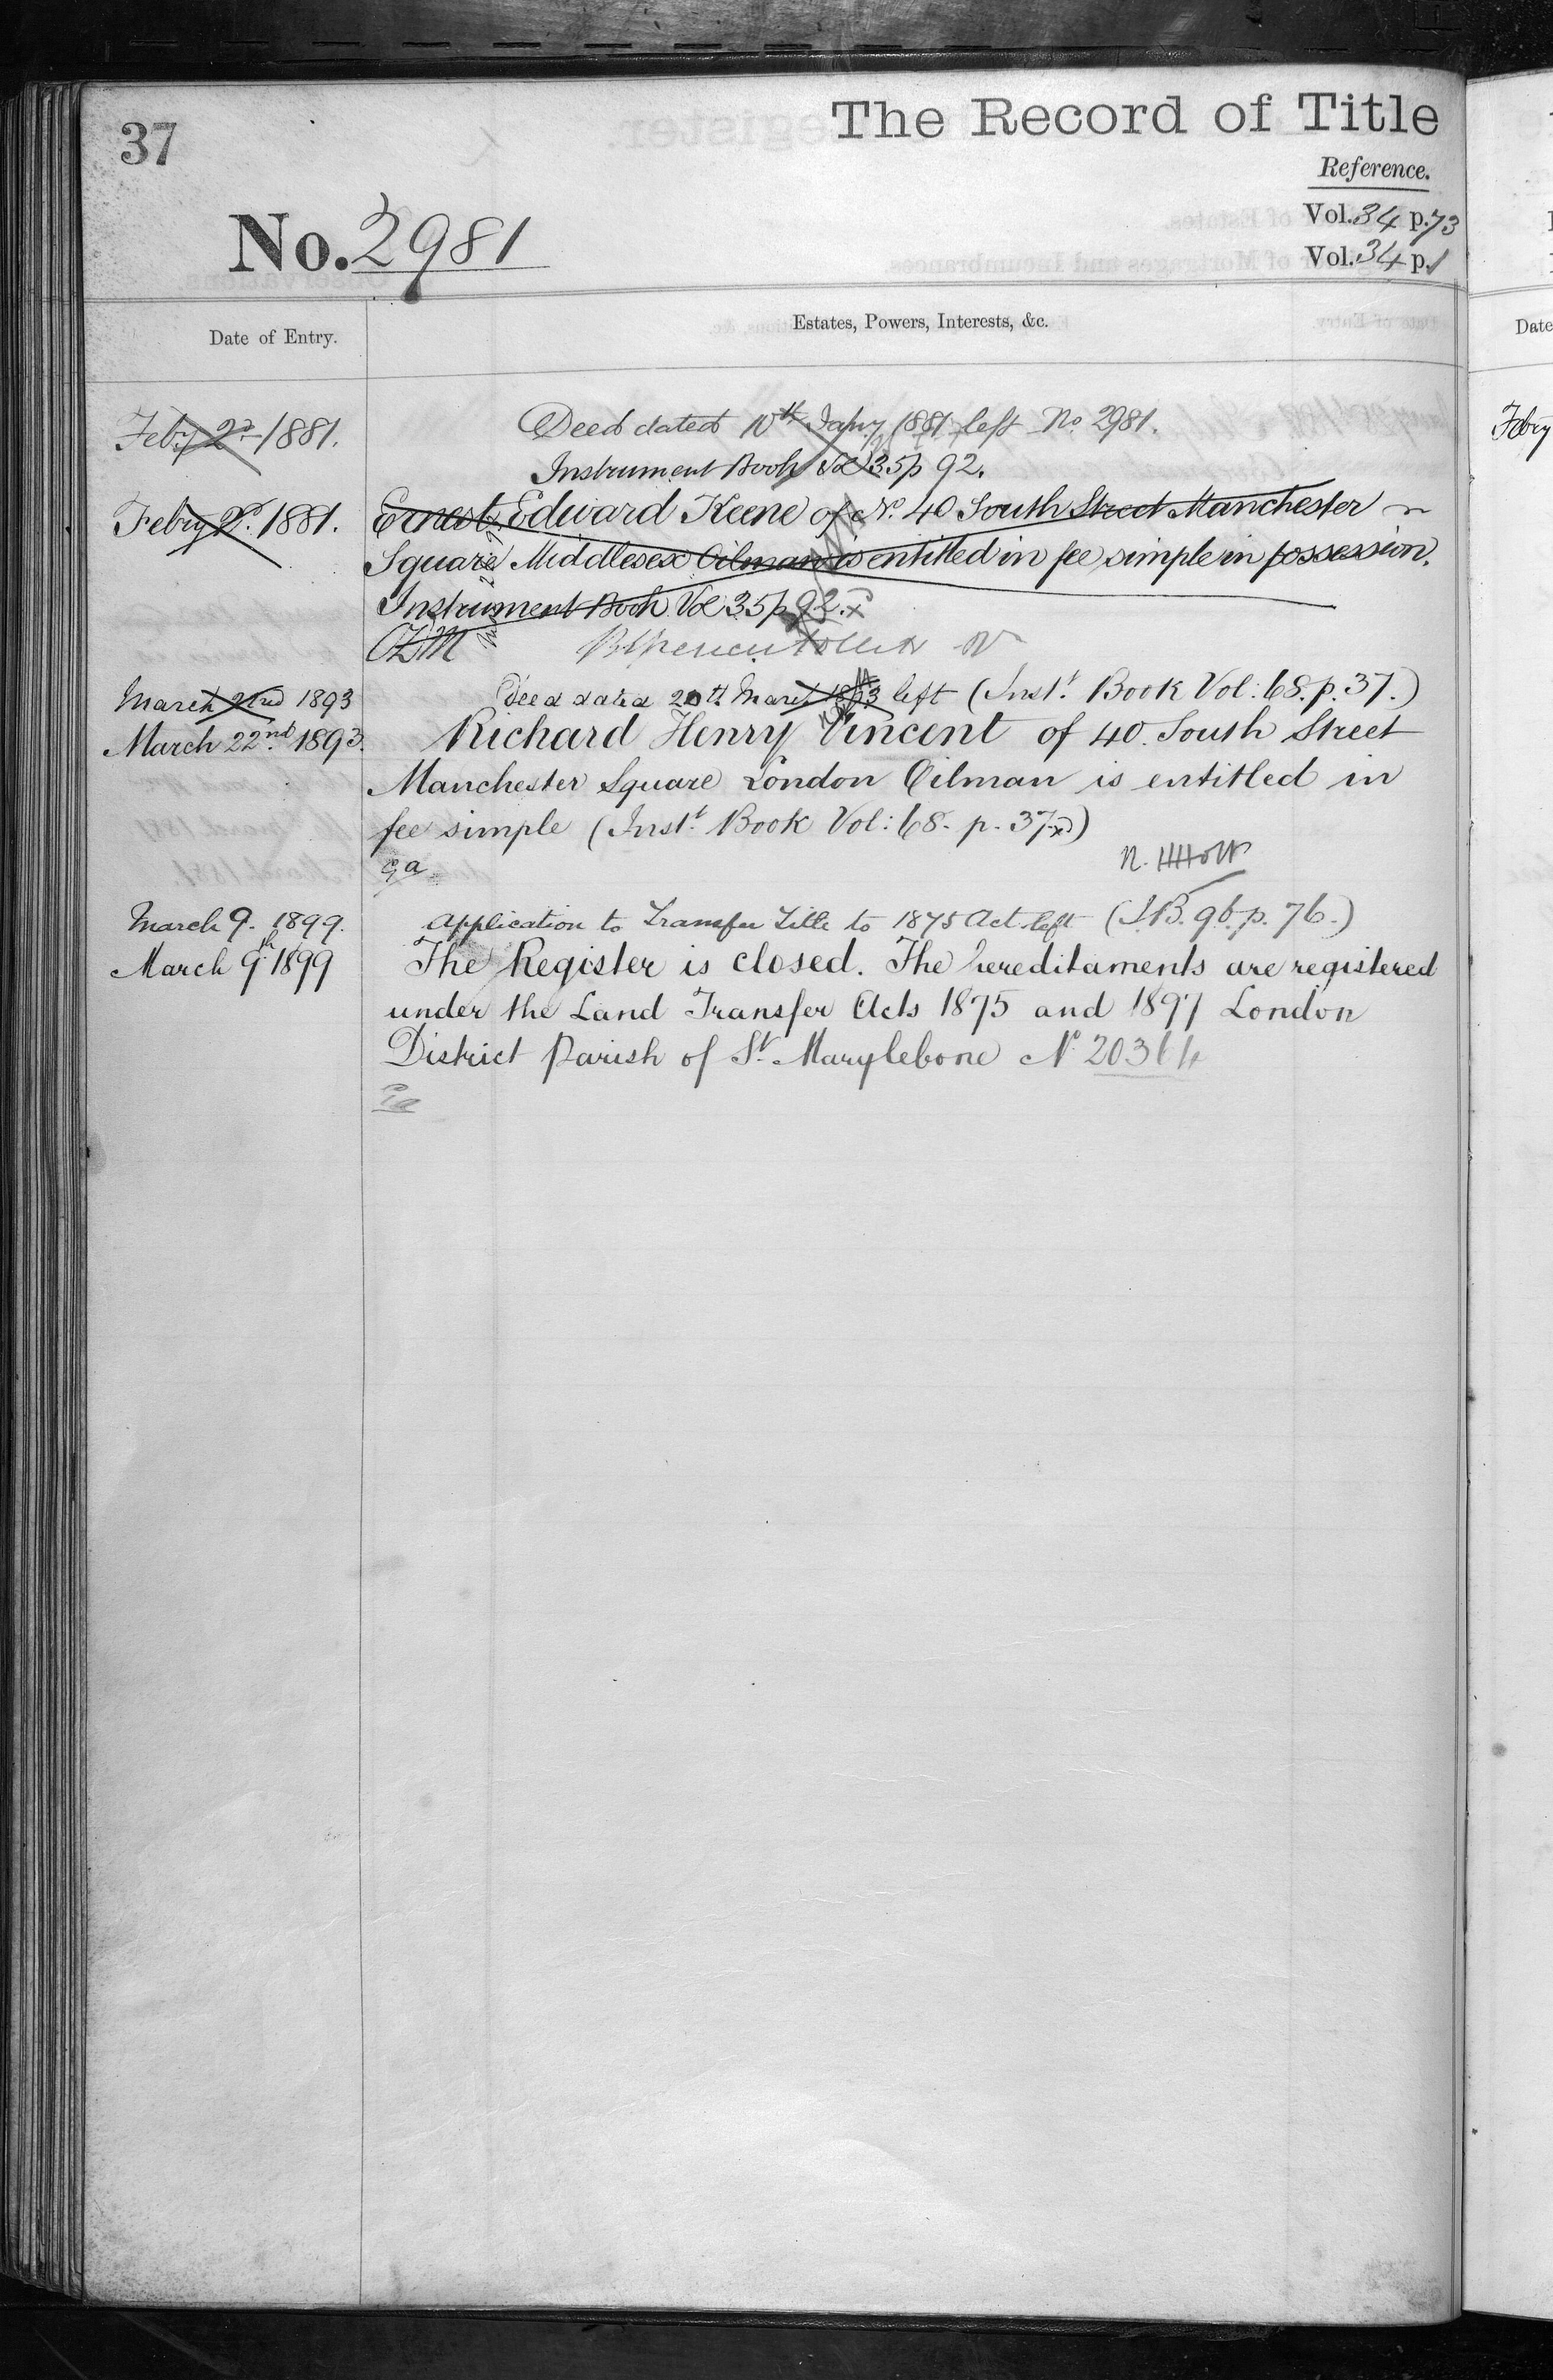 37
The Record of Title
Reference.
No. 2981
Vol. 34 p. 73
Vol. 34 p. 1
Date of Entry.
Estates, Powers, Interests, &c.
Date
Feby 2d 1881.
Deed dated 10th Jany 1881 left No 2981.
Instrument Book Vol 35 p 92.
Feby 2d. 1881.
Ernest Edward Keene of No. 40 South Street Manchester
Square Middlesex Oilman is entitled in fee simple in possession.
Instrument Book Vol 35 p 92.
Feby
March 22nd 1893
Deed dated 20th March 1893 left (Inst. Book Vol: 68. p. 37.)
March 22nd. 1893.
Richard Henry Vincent of 40. South Street
Manchester Square London Oilman is entitled in
fee simple (Inst. Book Vol: 68. p. 37)
March 9. 1899.
Application to Transfer Title to 1875 Act left (I.B. 96. p. 76.)
March 9th 1899
The Register is closed. The hereditaments are registered
under the Land Transfer Acts 1875 and 1897 London
District Parish of St. Marylebone No